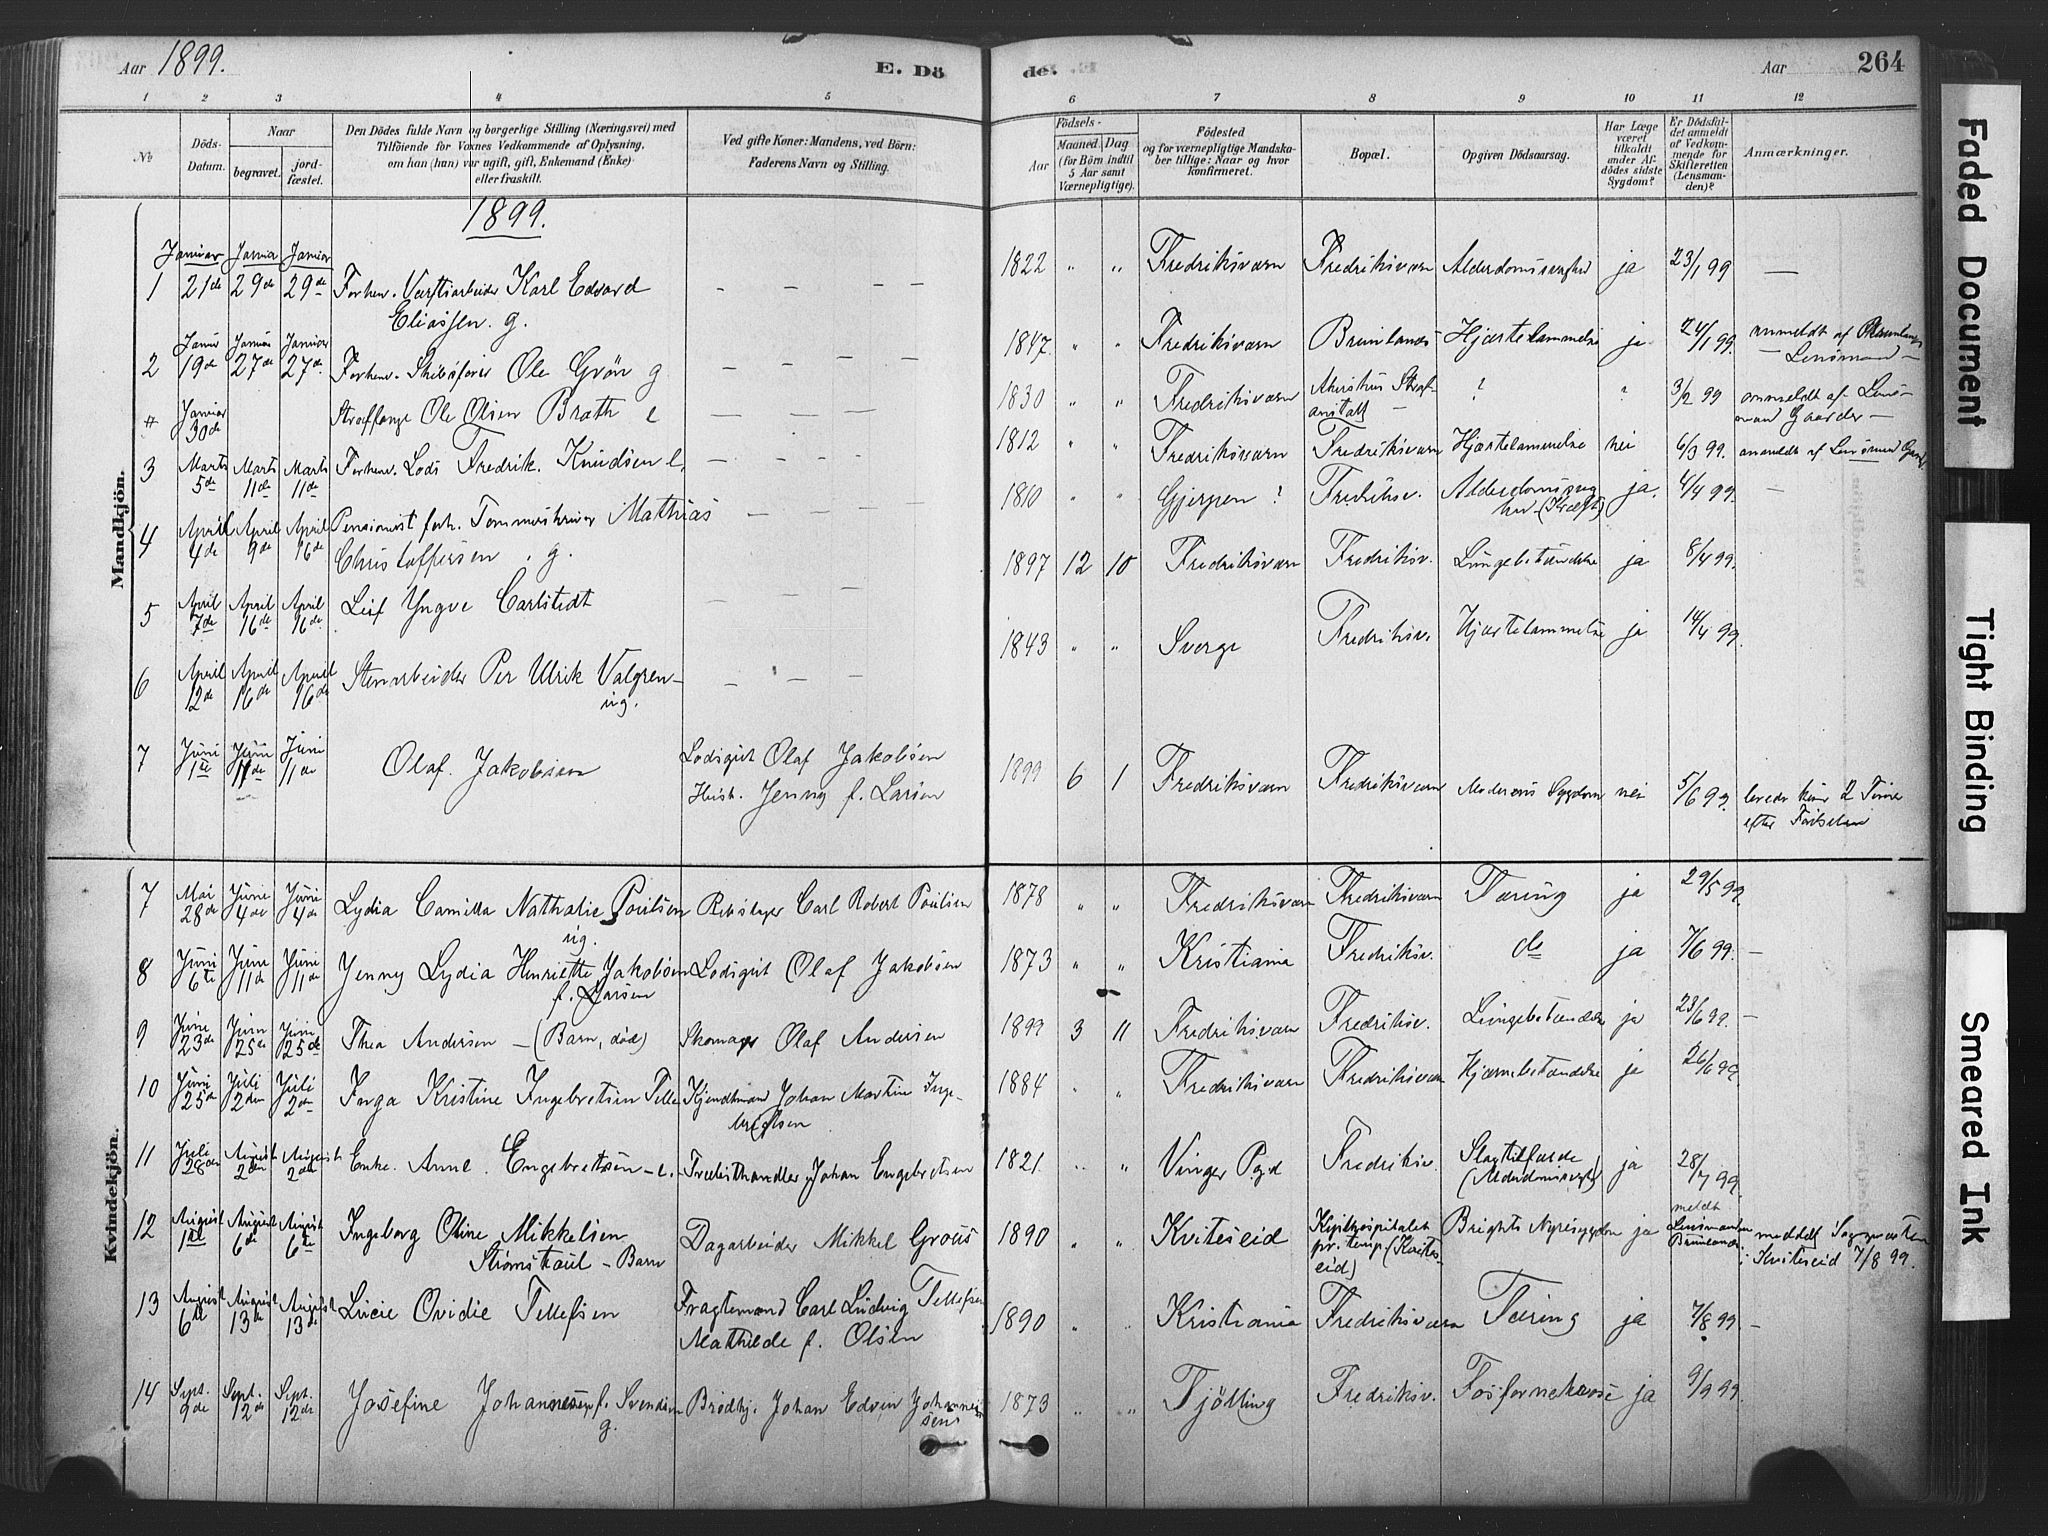 Aar 1899.
E. Dö
de.
Aar
264
1 2 3 4 5 6 7 8 9 10 11 12
No
Döds-Datum.
Naar
begravet.
jord-fæstet.
Den Dödes fulde Navn og borgerlige Stilling (Næringsvei) med
Tilföiende for Voxnes Vedkommende af Oplysning,
om han (hun) var ugift, gift, Enkemand (Enke)
eller fraskilt.
Ved gifte Koner: Mandens, ved Börn:
Faderens Navn og Stilling.
Födsels-
Aar
Maaned. Dag
(for Börn indtil
5 Aar samt
Værnepligtige).
Födested
og for værnepligtige Mandska-
ber tillige: Naar og hvor
konfirmeret.
Bopæl.
Opgiven Dödsaarsag.
Har Læge
været
tilkaldt
under Af-
dödes sidste
Sygdom?
Er Dödsful-
det anmeldt
af Vedkom-
mende for
Skifteretten
(Lensman-
den)?
Anmærkninger.
Mandkjön.
1899.
Januar Januar Januar
1 21de 29de 29de Forhen. Værftsarbeider Karl Edvard
Eliassen. g.
1822 " " Fredriksværn Fredriksværn ja 23/1 99 —
Januar Januar Januar
2 19de 27de 27de Forhen. Skibsfører Ole Grön g
1847. " " Fredriksværn Brunlanes Hjertelammelse ja 24/1 99. anmeldt af Brunlanes
— Lensmand —
# Januar 30de Straffange Ole Olsen Brath e
1830 " " Fredriksværn Akershus Straf-
anstalt — ? " 3/2 99 anmeldt af Lens-
mand Gaarder —
3 Marts 5de Marts 11de Marts 11de Forhenv. Lods Fredrik Knudsen e.
1812 " " Fredriksværn Fredriksværn Hjertelammelse nei 6/3 99. anmeldt af Lensmand
4 April 4de April 9de April 16de Pensionist forh. Tømmerskriver Mathias
Christoffersen . g.
1810 " " Gjerpen ? Fredriksv. ja. 4/4 99. —
5 April 7de April 16de April 16de Leif Yngve Carlstedt
1897 12 10 Fredriksværn Fredriksv. Lungebetændelse ja 8/4 99.
6 April 12de April 16de April 16de Stenarbeider Per Ulrik Valgren —
ug.
1843 " " Sverge Fredriksv. Hjertelammelse ja 14/4 99.
7 Juni 1te Juni 11de Juni 11de Olaf. Jakobsen Lodsgut Olaf Jakobsen
Hust. Jenny f. Larsen
1899 6 1 Fredriksværn Fredriksværn Moderens Sygdom nei 5/6 99. levede kun 2 Timer
efter Fødselen
Kvindekjön.
7 Mai 28de Juni 4de Juni 4de Lydia Camilla Nathalie Poulsen Rebslager Carl Robert Poulsen
ug.
1878 " " Fredriksværn Fredriksværn Tæring ja 29/5 99.
8 Juni 6te Juni 11de Juni 11de Jenny Lydia Henriette Jakobsen Lodsgut Olaf Jakobsen
f. Larsen
1873 " " Kristiania Fredriksv. do ja 7/6 99. —
9 Juni 23de Juni 25de Juni 25de Thea Andersen — (Barn, død) Skomager Olaf Andersen
1899 3 11 Fredriksværn Fredriksv. Lungebetændelse ja 23/6 99. —
10 Juni 25de Juli 2den Juli 2den Inga Kristine Ingebretsen Kjendtmand Johan Martin Inge-
bretsen
1884 " " Fredriksværn Fredriksværn Hjernebetændelse ja 26/6 99.
11 Juli 28de August 2den August 2den Enke. Anne. Engebretsen — e. Johan Engebretsen
1821. " " Vinger Pgd Fredriksv. Slagtilfælde ja 28/7 99.
12 August 1ste August 6te August 6te Ingeborg Oline Mikkelsen
Strømstaul — Barn Dagarbeider Mikkel
1890 " " Kviteseid Kysthospitalet
pr. temp (Kvites-
eid) Brights Nyresygdom ja meldt
Lensmanden
Brunlanes meddelt Sognepræsten
i Kviteseid 7/8 99.
13 August 6te August 13de August 13de Lucie Ovidie Tellefsen Fragtemand Carl Ludvig Tellefsen
Mathilde f. Olsen
1890 " " Kristiania Fredriksværn Tæring ja 7/8 99. —
14 Sept. 9de Sept. 12de Sept. 12de Josefine Johannesen f. Svendsen
g. Johan Edvin Johanne-
sen
1873 " " Tjölling Fredriksv. Fosfornekrose ja 9/9 99.
Faded Document
Tight Binding
Smeared Ink